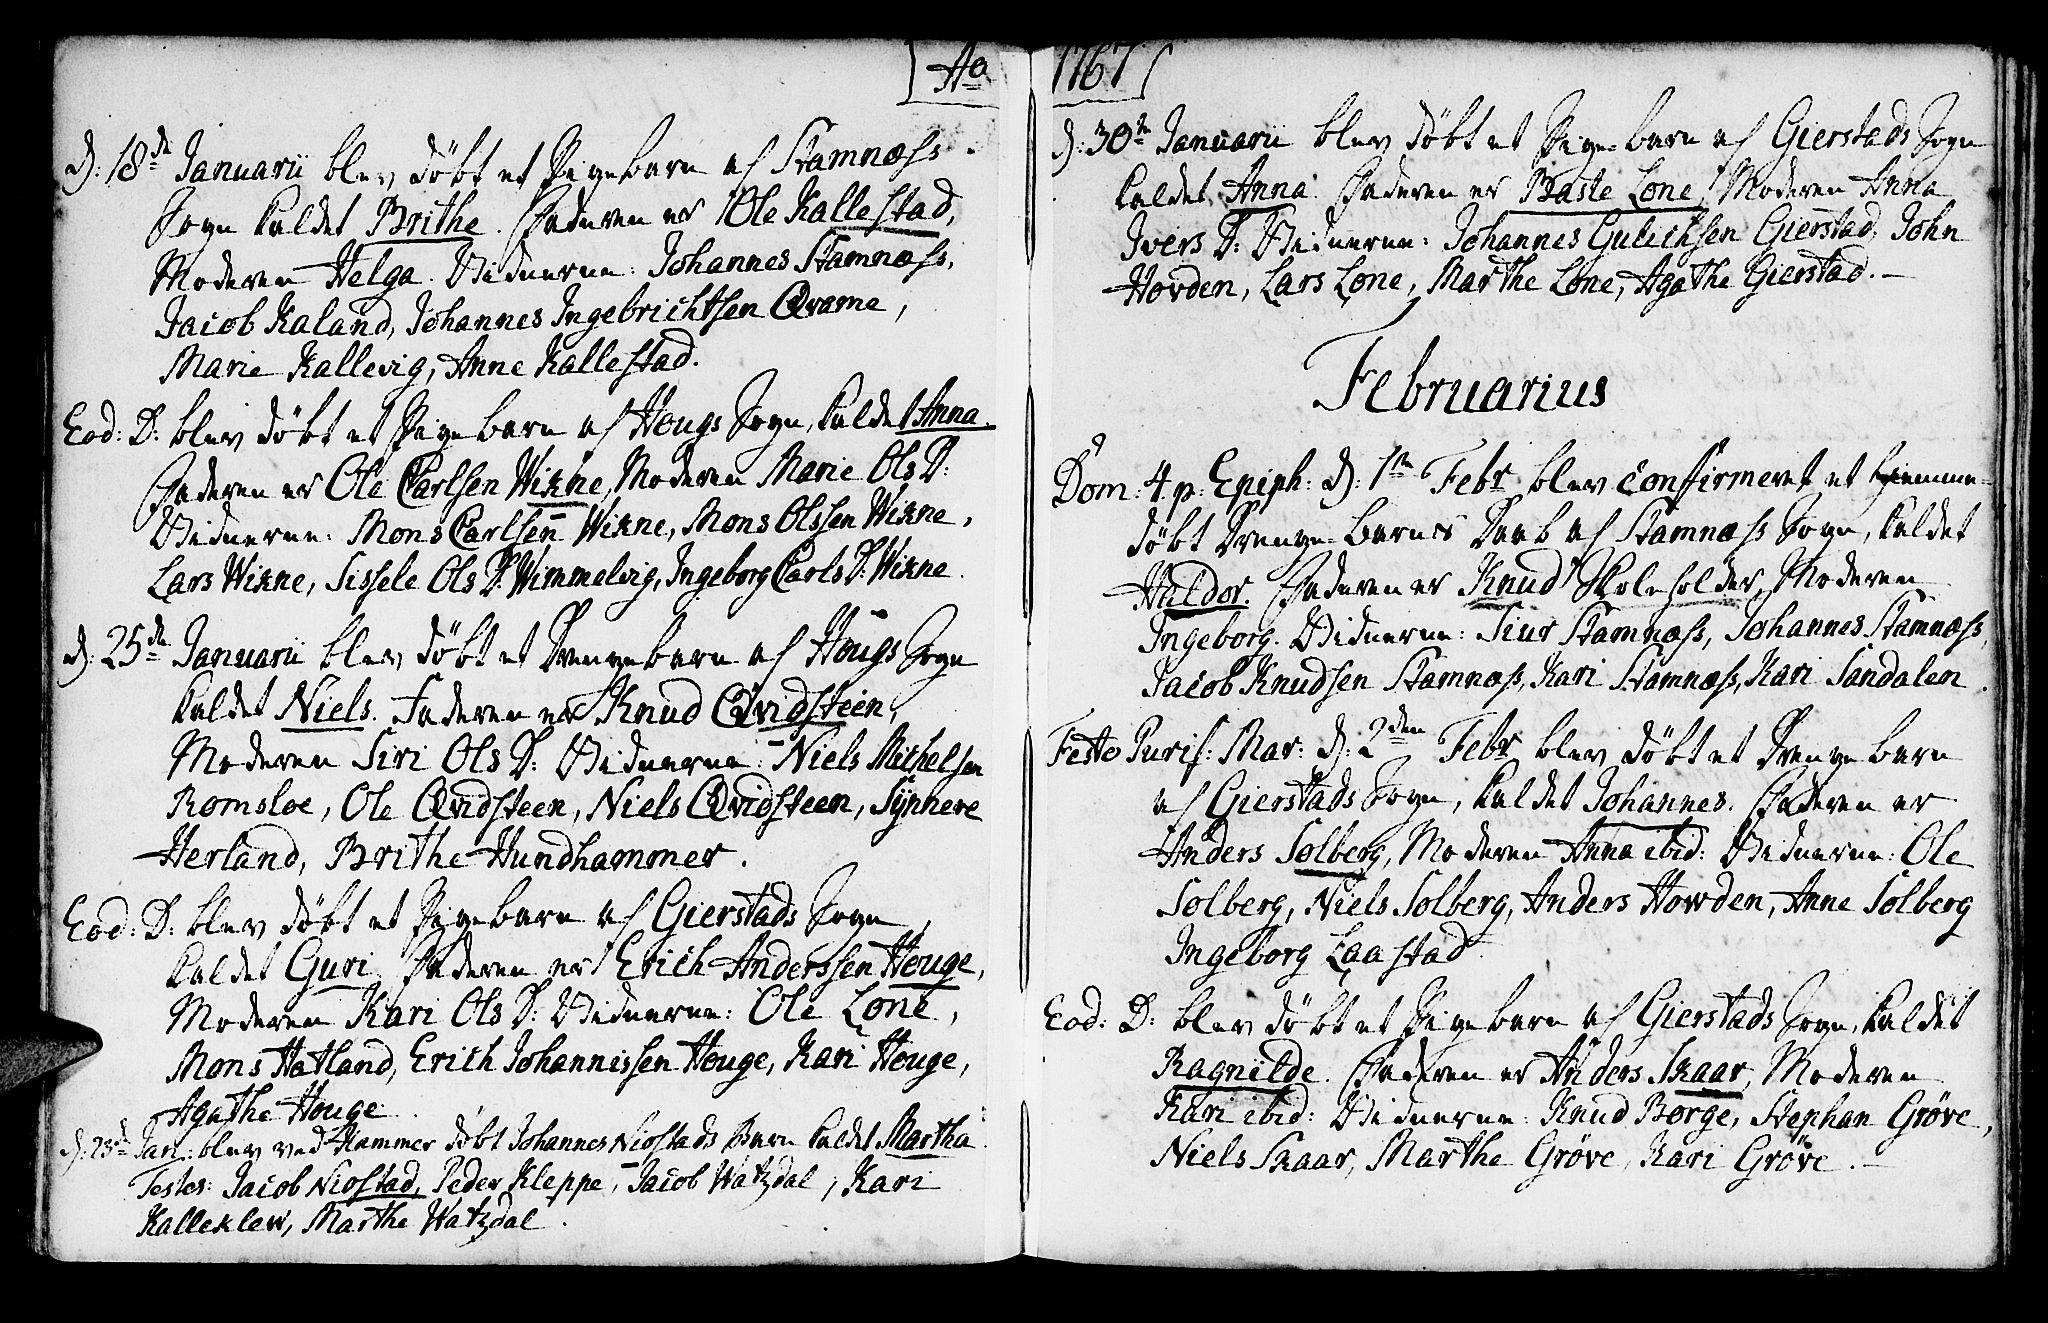 Ao 1767
D: 18de Januarii blev döbt et Pigebarn af Stamnæss
Sogn kaldet Brithe. Faderen er Ole Kallestad,
Moderen Helga. Vidnerne: Johannes Stamnæss,
Jacob Kaland, Johannes Ingebrichtsen Qvame,
Marie Kallevig, Anne Kallestad.
Eod: D: blev döbt et Pigebarn af Hougs Sogn, kaldet Anna.
Faderen er Ole Carlsen Wikne, Moderen Marie Ols D:
Vidnerne: Mons Carlsen Wikne, Mons Olssen Wikne,
Lars Wikne, Sissele Ols D: Wimmelvig, Ingeborg Carls D: Wikne.
D: 25de Januarii blev döbt et Drengebarn af Hougs Sogn
kaldet Niels. Faderen er Knud Qvidsteen,
Moderen Siri Ols D: Vidnerne: Niels Michelsen
Romsloe, Ole Qvidsteen, Niels Qvidsteen, Synneve
Herland, Brithe Hundhammer.
Eod: D: blev döbt et Pigebarn af Gierstads Sogn,
kaldet Guri. Faderen er Erich Anderssen Houge,
Moderen Kari Ols D: Vidnerne: Ole Lone,
Mons Hatland, Erich Johannissen Houge, Kari Houge,
Agathe Houge.
D: 23de Jan: blev ved Hammer döbt Johannes Niostads Barn kaldet Martha.
Testes: Jacob Niostad, Peder Kleppe, Jacob Watzdal, Kari
Kalleklew, Marthe Watzdal.
D: 30te Januarii blev döbt et Pige-barn af Gierstads Sogn
kaldet Anna. Faderen er Baste Lone, Moderen Anna
Ivers D: Vidnerne: Johannes Gulichsen Gierstad, John
Hovden, Lars Lone, Marthe Lone, Agathe Gierstad.
Februarius
Dom: 4 p: Epiph: D: 1te Febr blev confirmeret et hiemme-
döbt Drenge-Barns Daab af Stamnæss Sogn, kaldet
Haldor. Faderen er Knud Skoleholder, Moderen
Ingeborg. Vidnerne: Siur Stamnæss, Johannes Stamnæss,
Jacob Knudsen Stamnæss, Kari Stamnæss, Kari Sandalen.
Festo Purif: Mar: D: 2den Febr blev döbt et Drengebarn
af Gierstads Sogn, kaldet Johannes. Faderen er
Anders Solberg, Moderen Anna ibid: Vidnerne: Ole
Solberg, Niels Solberg, Anders Howden, Anne Solberg
Ingeborg Laastad.
Eod: D: blev döbt et Pigebarn af Gierstads Sogn, kaldet
Ragnilde. Faderen er Anders Skaar, Moderen
Kari ibid: Vidnerne: Knud Borge, Stephan Gröve,
Niels Skaar, Marthe Gröve, Kari Gröve.